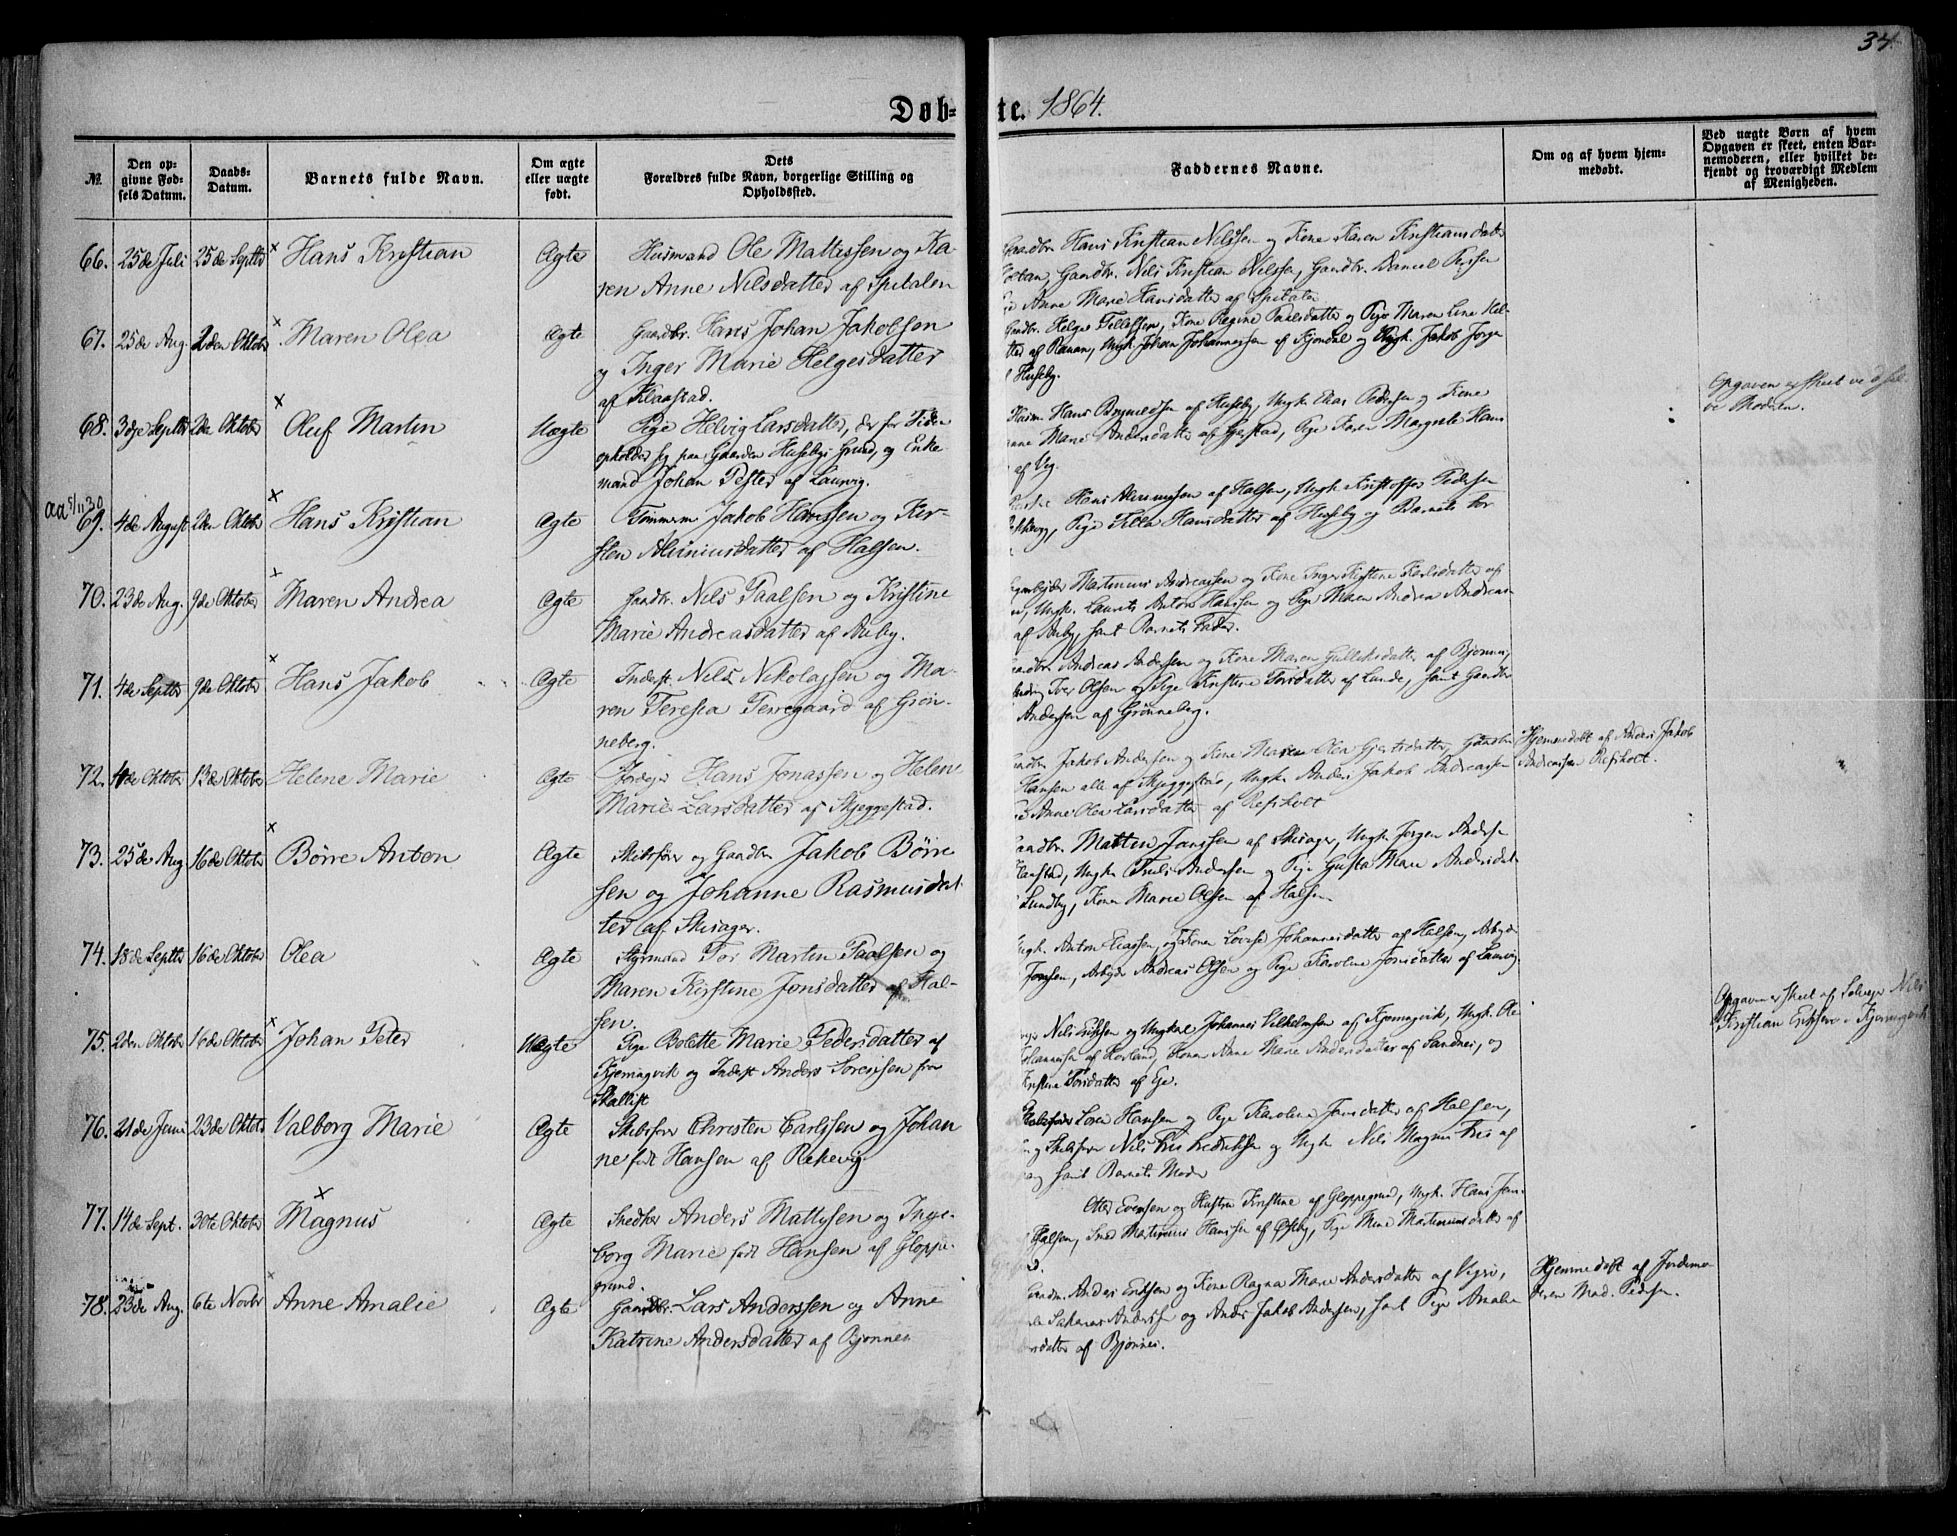 34.
Døb-te. 1864.
№.
Den op-
givne Fød-
sels Datum.
Daabs-
Datum.
Barnets fulde Navn.
Om ægte
eller uægte
født.
Dets
Forældres fulde Navn, borgerlige Stilling og
Opholdssted.
Faddernes Navne.
Om og af hvem hjem-
medøbt.
Ved uægte Børn af hvem
Opgaven er skeet, enten Bar-
nemoderen, eller hvilket be-
kjendt og troværdigt Medlem
af Menigheden.
66. 25de Juli 25de Septbr × Hans Kristian Ægte Husmand Ole Mattissen og Ka-
ren Anne Nilsdatter af Spitalen
Gaardbr. Hans Kristian Nilssen og Kone Karen Kristiansdatter
Gaardbr. Nils Kristian Nilssen, Gaardbr. Daniel
Anne Marie Hansdatter af Spitalen
67. 25de Aug. 2den Oktober × Maren Olea Ægte Gaardbr. Hans Johan Jakobsen
og Inger Marie Helgesdatter
af Klaastad.
Gaardbr. Helge Tollefsen, Kone Regine Paulsdatter og Pige Maren Line Hel-
af Ranan, Ungk. Johan Johannessen af Gjondal og Ungk. Jakob Jørgen
Huseby.
68. 3dje Septbr 2den Oktober × Oluf Martin Uægte Pige Helvig Larsdatter, der for Tiden
opholder sig paa Gaarden Husebys Grund, og Enke
mand Johan Pester af Laurvig.
Husm. Hans Brynildsen af Huseby, Ungk. Elias Pedersen og Kone
Anne Marie Andersdatter af Gjerstad, Pige Karen Margrete Hans
af Veg.
Opgaven er skeet ved sel-
ve Moderen.
aa 5/11 30
69. 4de August 2den Oktober × Hans Kristian Ægte Tømmerm. Jakob Hanssen og Kir-
sten Aluniusdatter af Halsen.
Hans Alunussen af Halsen, Ungk. Kristoffer Pedersen
Pige Hansdatter af Huseby og Barnets
70. 23de Aug. 9de Oktober × Maren Andrea Ægte Gaardbr. Nils Paalsen og Kristine
Marie Andreasdatter af Auby.
Martinius Andreassen og Kone Inger Kirstine Karlsdatter af
Ungk. Laurits Anton Hansen og Pige Maren Andrea Andreas-
af Auby, samt Barnets Fader.
71. 4de Septbr 9de Oktober × Hans Jakob Ægte Inderst Nils Nikolassen og Ma-
ren Teresia Terregaard af Grøn-
neberg.
Gaardbr. Andreas Andersen og Kone Maren Gulliksdatter af Bjønnes,
Iver Olsen og Pige Kirstine Torsdatter af Lunde, samt Gaardbr
Andersen af Grønneberg.
72. 4de Oktober 13de Oktober Helene Marie Ægte Jordejer Hans Jonassen og Helene
Marie Larsdatter af Skjeggestad.
Gaardbr. Jakob Andersen og Kone Maren Olea Gjertsdatter, Gaardbr
Hansen alle af Skjeggestad, Ungk. Anders Jakob Andreassen
Anne Olea Larsdatter af Refsholt
Hjemmedøbt af Anders Jakob
Andreassen Refsholt.
73. 25de Aug 16de Oktober × Børre Anton Ægte Skibsfører og Gaardbr Jakob Børre
sen og Johanne Rasmusdat-
ter af Skisager.
Gaardbr. Mattin Janssen af Skisager, Ungk. Jørgen Andersen
Klaastad, Ungk. Truls Andersen og Pige Gusta Marie Andersdat-
Lundby, Kone Marie Olsen af Halsen
74. 18de Septbr 16de Oktober Olea Ægte Styrmand Tor Martin Paalsen og
Maren Kirstine Jonsdatter af Hal-
sen.
Ungk. Anton Eliassen, og Kone Lovise Johannesdatter af Halsen, Arbejder
Jonsen, Arbejder Andreas Olsen og Pige Karoline Jonsdatter af Laurvig
75. 2den Oktober 16de Oktober × Johan Peter Uægte Pige Bolette Marie Pedersdatter af
Kjernagvik og Inderst Anders Sørensen fra
Skallist
Nils Eriksen og Ungkarl Johannes Vilhelmsen af Kjernagvik, Ungk. Ole
Johannesen af Rorland, Konen Anne Marie Andersdatter af Sandnes, og
Kristine Torsdatter af Eje.
Opgaven er skeet af Selveier Nils
Kristian Eriksen i Kjernagvik
76. 21de Juni 23de Oktob. Valborg Marie Ægte Skibsfører Christen Carlssen og Johan
ne født Hansen af Rekevig
Skibsfører Søren Hansen og Pige Karoline Jansdatter af Halsen,
Skibsfører Nils Friis Fredriksen og Ungk. Nils Magnus Friis af
samt Barnets Moder
77. 14de Sept. 30te Oktober × Magnus Ægte Snedker Anders Mattissen og Inge-
borg Marie født Hansen af Gloppe-
grund.
Otter Evensen og Hustru Kristine af Gloppegrund, Ungk. Hans Jan-
Halsen, Sned. Martinus Hanssen af Østby, Pige Mine Martiniusdatter af
78. 23de Aug. 6te Novbr × Anne Amalie Ægte Gaardbr. Lars Anderssen og Anne
Katrine Andersdatter af Bjønnes
Anders Eriksen og Kone Ragna Marie Andersdatter af Vegs,
Sakarias Anderss og Anders Jakob Andersen, samt Pige Amalie
datter af Bjønnes.
Hjemmedøbt af Jordemo-
deren Mad. Pedersen.